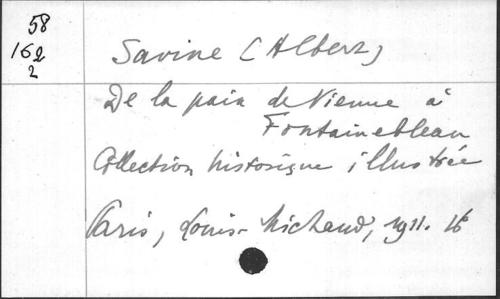 58
162
2
Savine (Albert)
De la paix de Vienne à
Fontainebleau
Collection historique illustrée
Paris, Louis-Michaud, 1911. 16